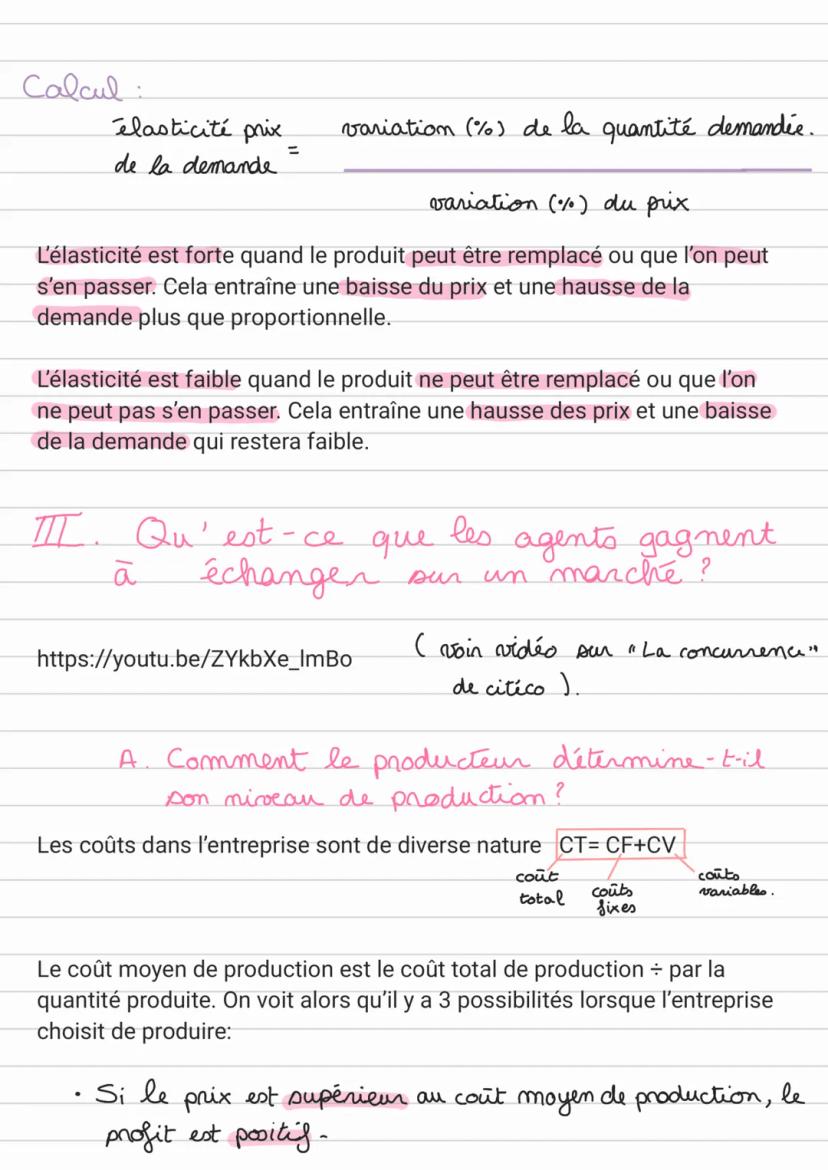 Calcul :
élasticité prix de la demande = variation (%) de la quantité demandée.
variation (%) du prix
L'élasticité est forte quand le produit peut être remplacé ou que l'on peut
s'en passer. Cela entraîne une baisse du prix et une hausse de la
demande plus que proportionnelle.
L'élasticité est faible quand le produit ne peut être remplacé ou que l'on
ne peut pas s'en passer. Cela entraîne une hausse des prix et une baisse
de la demande qui restera faible.
III. Qu'est-ce que les agents gagnent
à échanger sur un marché ?
https://youtu.be/ZYkbXe_lmBo
( voir vidéo sur "La concurrence"
de citéco ).
A. Comment le producteur détermine-t-il
son niveau de production ?
Les coûts dans l'entreprise sont de diverse nature CT= CF+CV
coût total
coûts fixes
coûts variables.
Le coût moyen de production est le coût total de production ÷ par la
quantité produite. On voit alors qu'il y a 3 possibilités lorsque l'entreprise
choisit de produire:
• Si le prix est supérieur au coût moyen de production, le
profit est positif.